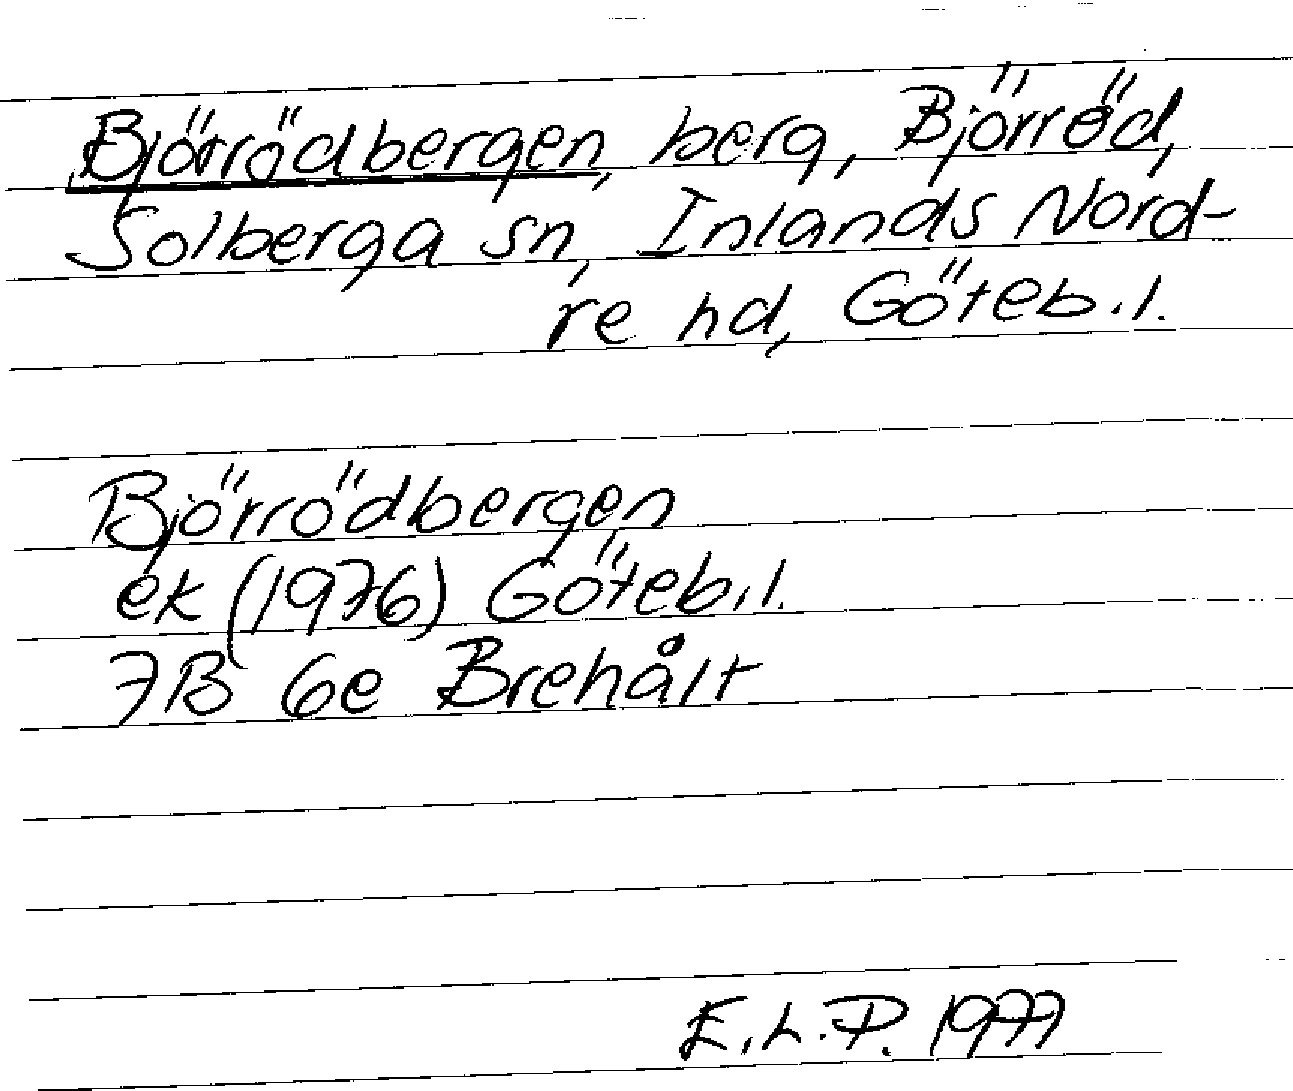 Björrödbergen, berg, Björröd,
Solberga sn, Inlands Nord-
re hd, Göteb.l.
Björrödbergen
ek (1976) Göteb.l.
7B 6e Brehålt
E.L.P. 1977